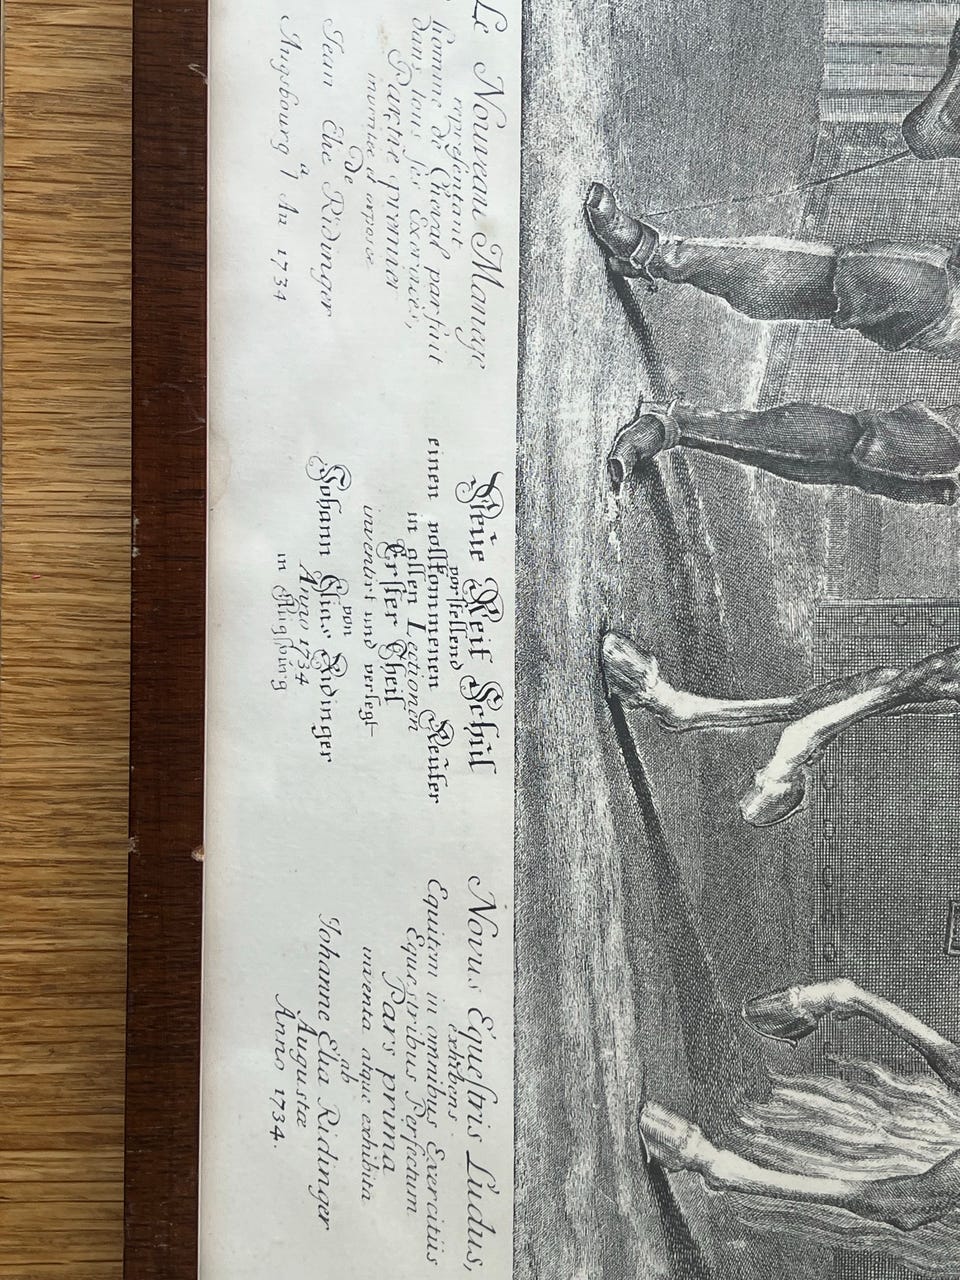 Le Nouveau Manege
representant
homme de Cheval parfait
dans tous ses Exercices,
Partie premier
inventée et exposée
De
Jean Elie Ridinger
Augsbourg l'An 1734
Neüe Reit Schul
vorstellend
einen vollkommenen Reüter
in allen Lectionen
Erster Theil
inventirt und verlegt
von
Johann Elias Ridinger
Anno 1734
in Augspurg
Novus Equestris Ludus,
exhibens
Equitem in omnibus Exercitiis
Equestribus Perfectum
Pars prima
inventa atque exhibita
ab
Johanne Elia Ridinger
Augustæ
Anno 1734.